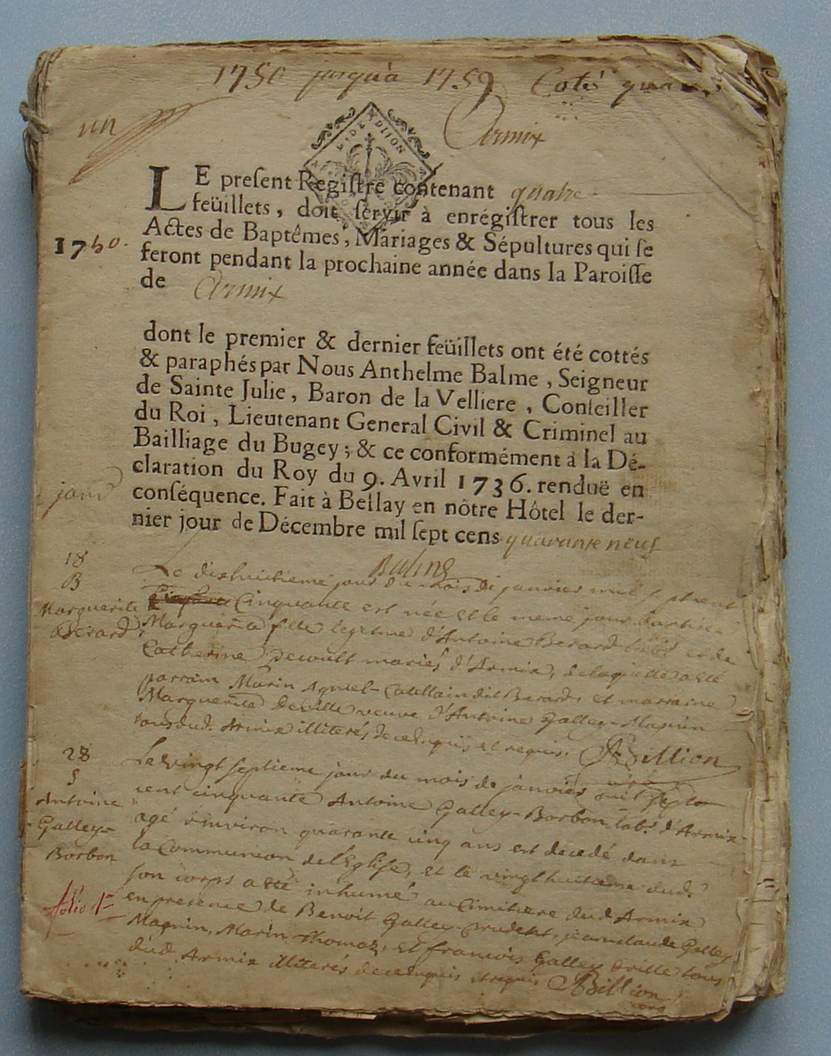 1750 jusqu'a 1759 Coté
un
Armix
LE present Registre contenant quatre
feüillets, doit servir à enrégistrer tous les
Actes de Baptêmes, Mariages & Sépultures qui se
1750.
feront pendant la prochaine année dans la Paroisse
de Armix
dont le premier & dernier feüillets ont été cottés
& paraphés par Nous Anthelme Balme, Seigneur
de Sainte Julie, Baron de la Velliere, Conseiller
du Roi, Lieutenant General Civil & Criminel au
Bailliage du Bugey; & ce conformément à la Dé-
claration du Roy du 9. Avril 1736. renduë en
conséquence. Fait à Bellay en nôtre Hôtel le der-
nier jour de Décembre mil sept cens quarante neuf
janv
Balme
18
B
Marguerite
Berard
Le dixhuitieme jour du mois de janvier mil sept cent
Cinquante est née et le meme jour
Marguerite fille legitime d'Antoine Berard lab.r et de
Catherine mariés d'Armix, de laquelle a été
parrain Marin dit Berard, et marraine
Marguerite Deville veuve d'Antoine Galley-Magnin
tous dud. Armix illiterés de ce enquis et requis. Billion
28
S
Antoine
Galley-
Borbon
Le vingt septieme jour du mois de janvier mil sept
cent cinquante Antoine Galley-Borbon lab.r d'Armix
agé d'environ quarante cinq ans est decedé dans
la Communion de l'Eglise, et le vingthuitieme dud.
son corps a eté inhumé au Cimitiere dud. Armix
en presence de Benoit Galley-Prudent, jeanclaude Galley
Magnin, Marin Thomaz, et françois Galley Deville tous
dud. Armix illiterés de ce enquis et requis Billion
folio 1er